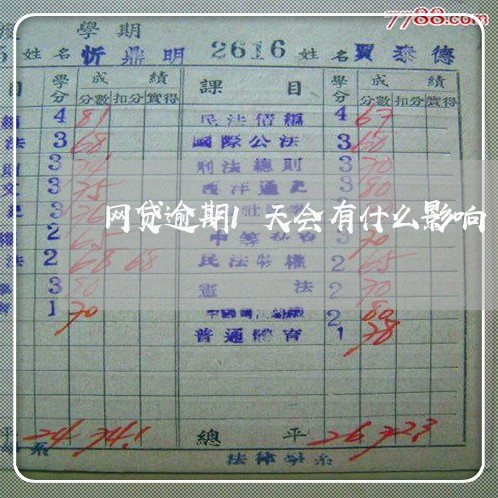 7788.com
學期
5 姓名 忻鼎明 2616 姓名 賈泰德
目 學分 成績 課目 學分 成績
分數 扣分 實得 分數 扣分 實得
4 81 民法債編 4 67
法 3 68 國際公法 3 60
則 3 刑法總則 3 70
3 75 西洋通史 3 80
史 3
網贷逾期1天会有什么影响
2 65 3 70
法 2 68 68 民法物權 2 65
3 80 憲法 2 70
育 1 70 2 80
普通體育 1 78
平 24 74.1 總平 26 72.3
系 法律學系